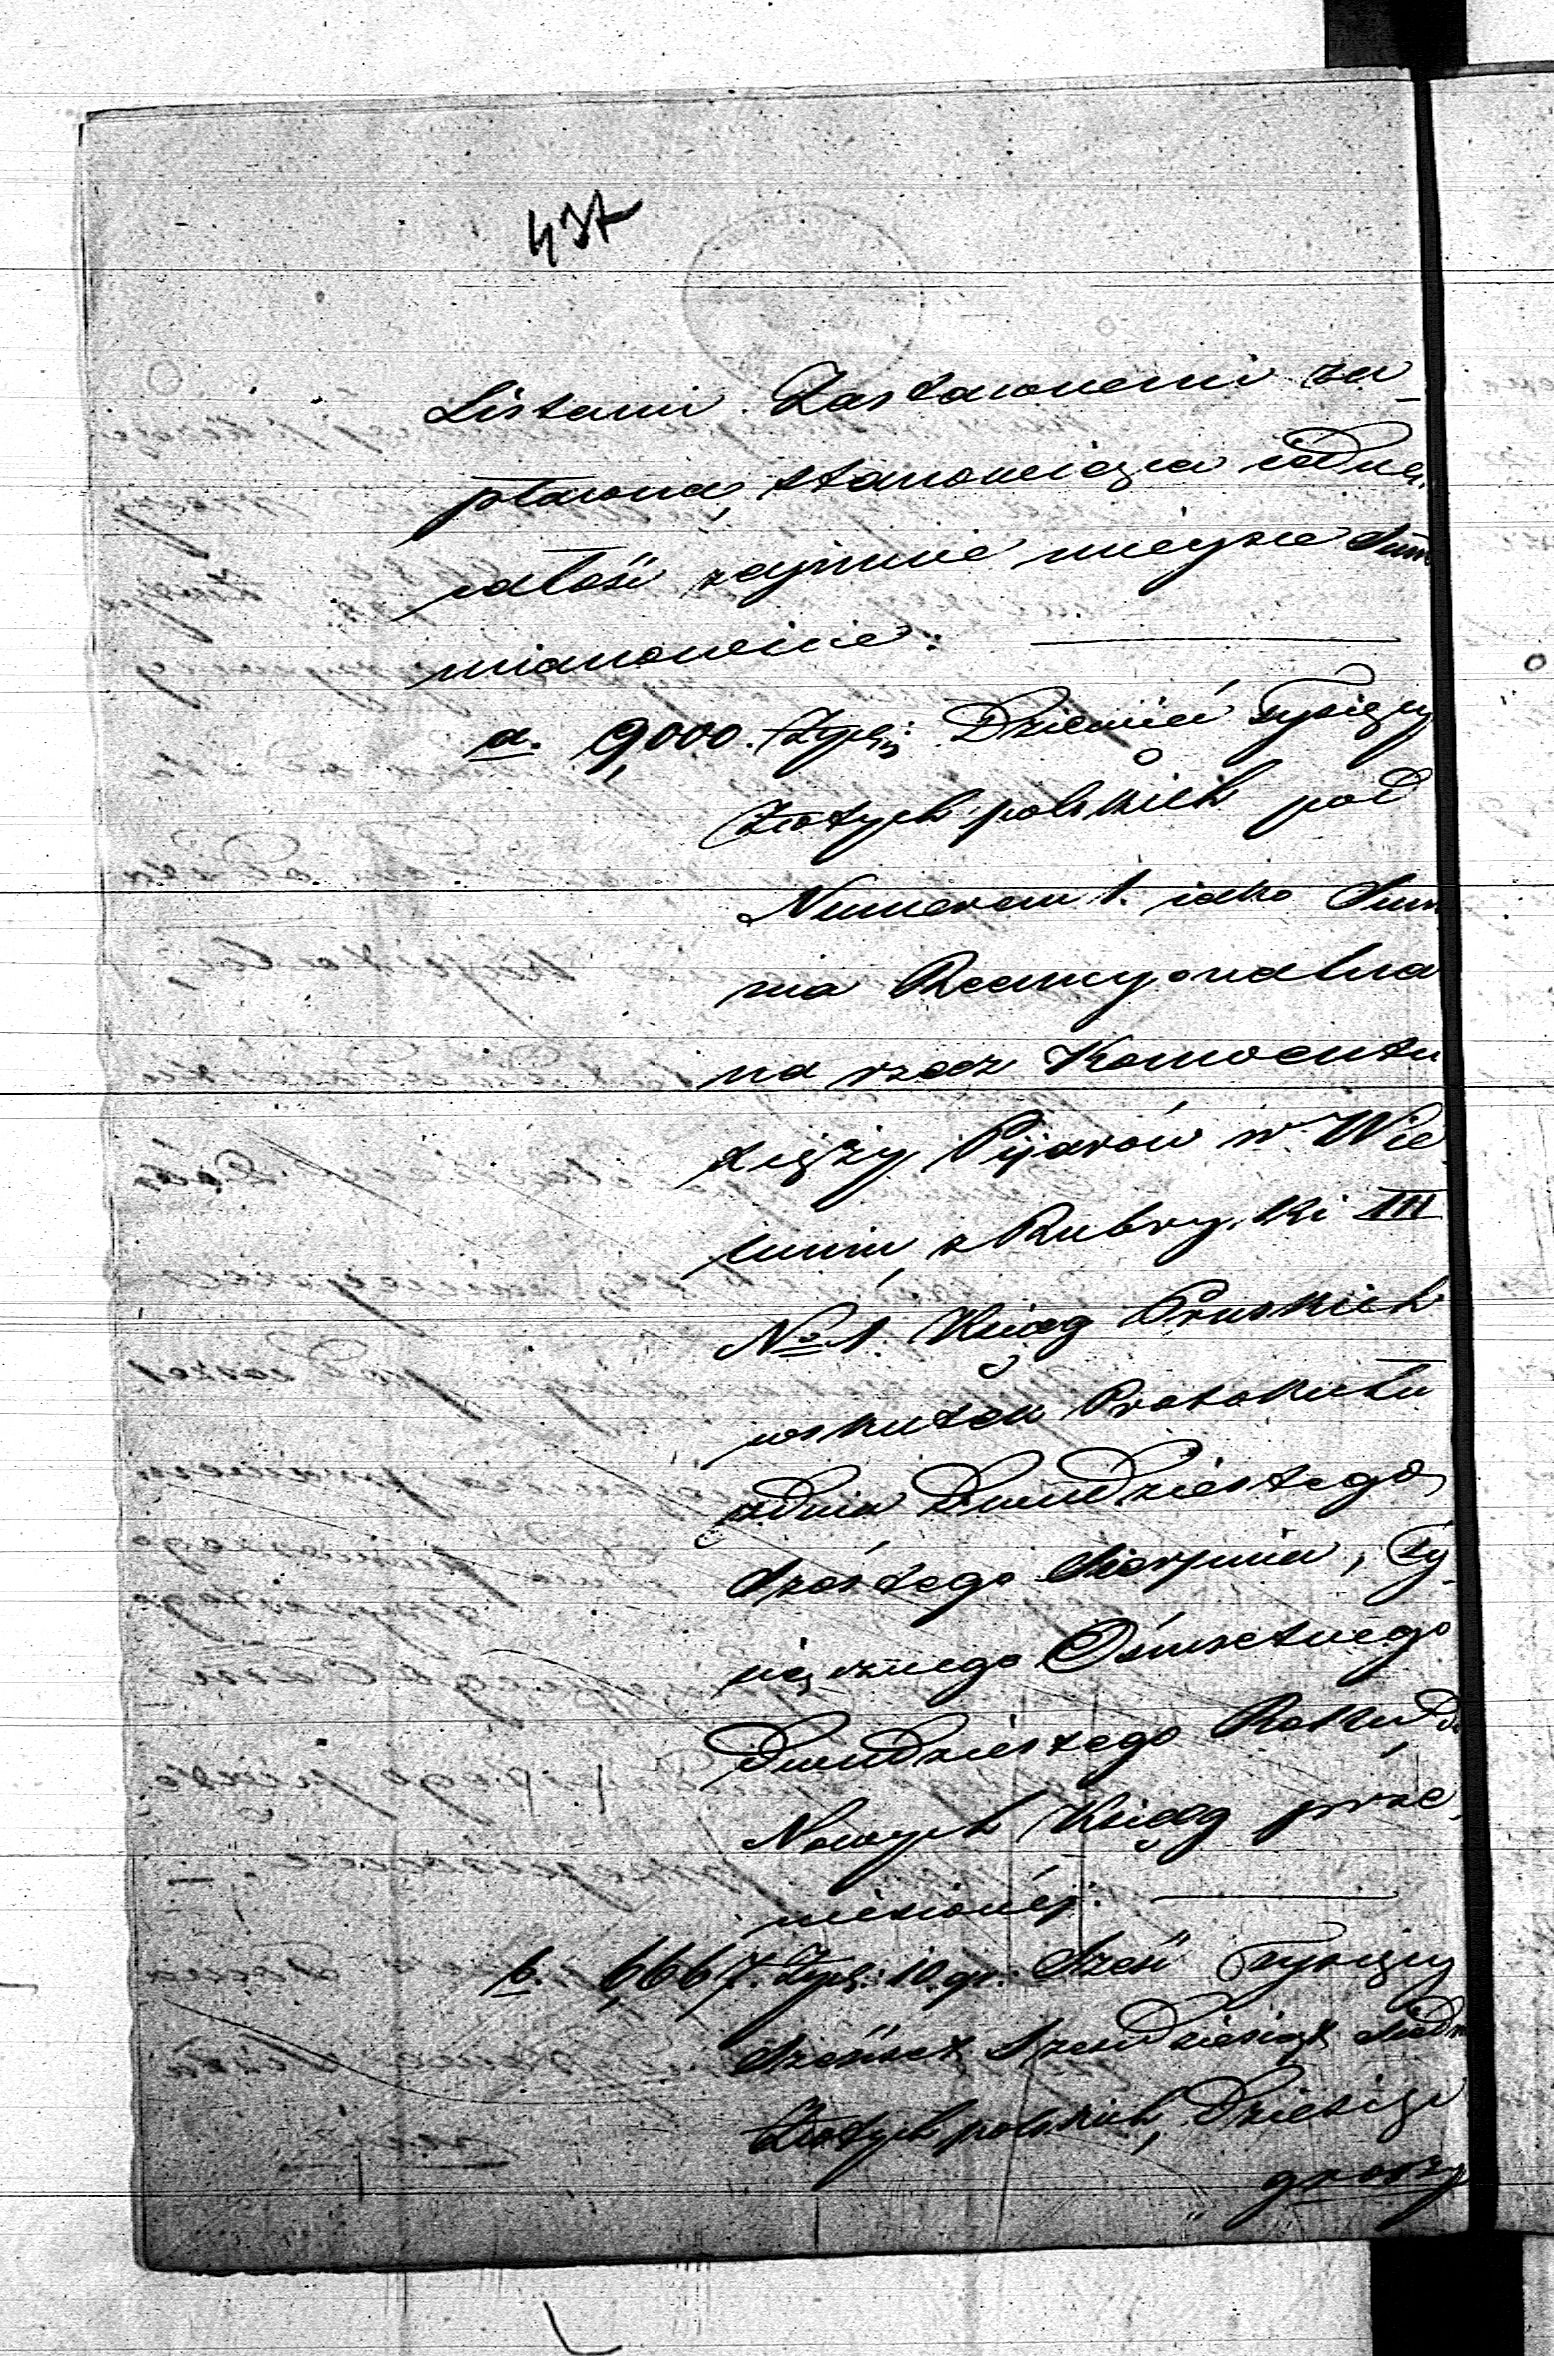 437
Listami Zastawnemi za-
płacona, stanowiąca jedną
całość zajmuie mieysce Sum
mianowicie:
a. 9,000. Złpl: Dziewięć Tysięcy
Złotych polskich pod
Numerem 1. iako Sum
ma Reemcyonalna
na rzecz Konwentu
Xięży Pijarów w Wie
luniu, z Rubryki III
No 1. Xiąg Pruskich
wskutek Protokułu
zdnia Dwudziestego
szóstego Sierpnia, Ty-
siącznego Ośmsetnego
Dwudziestego Roku do
Nowych Xiąg prze-
niesionéj.
b. 6,667. Złpl: 10. gr: Sześć Tysięcy
Sześćset Sześdziesiąt Siedm
Złotych polskich, Dziesięć
groszy